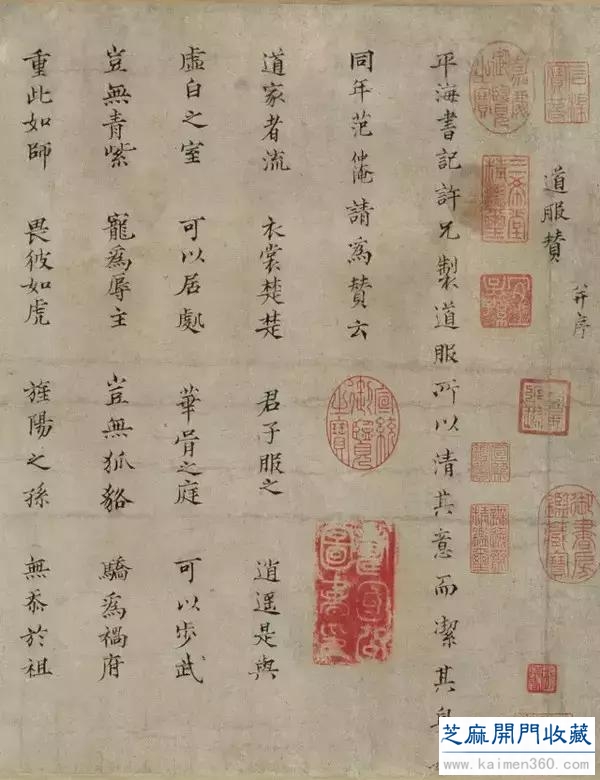 道服贊 并序
平海書記許兄製道服所以清其意而潔其身
同年范仲淹請爲贊云
道家者流 衣裳楚楚 君子服之 逍遥是與
虛白之室 可以居處 華胥之庭 可以步武
豈無青紫 寵爲辱主 豈無狐貉 驕爲禍府
重此如師 畏彼如虎 旌陽之孫 無忝於祖
御書房鑑藏寶
嘉慶御覽之寶
三希堂精鑑璽
宣統御覽之寶
芝麻開門收藏
www.kaimen360.com